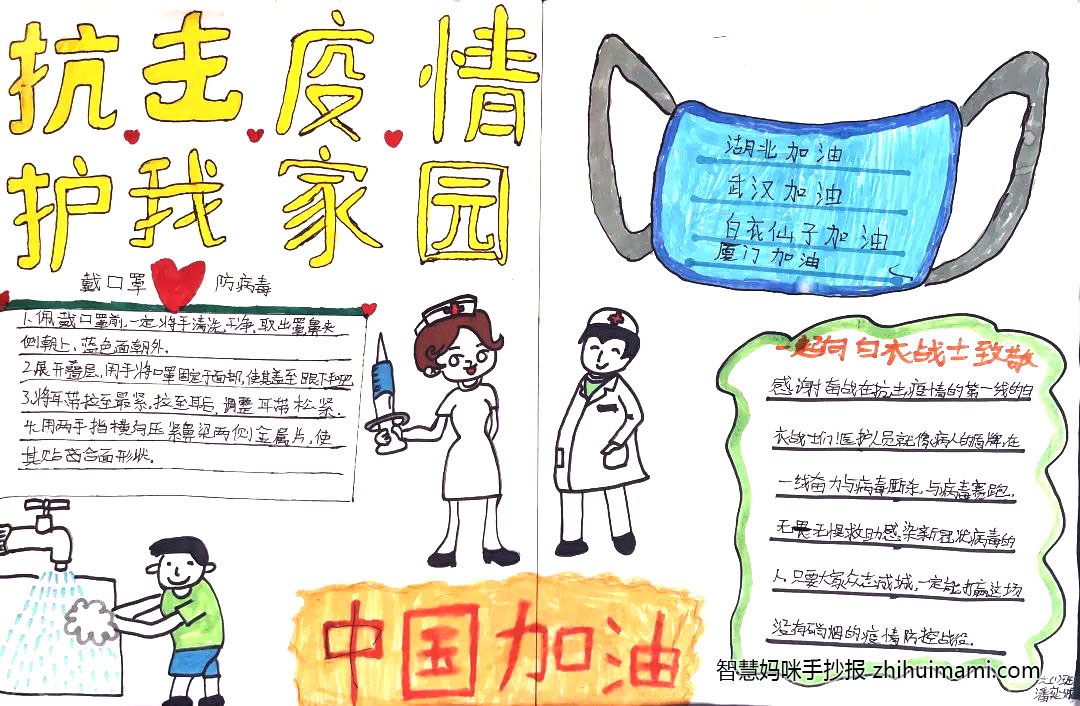 抗击疫情
护我家园
戴口罩 防病毒
1.佩戴口罩前,一定将手清洗干净,取出罩鼻夹
侧朝上,蓝色面朝外。
2.展开叠层,用手将口罩固定于面部,使其盖至眼下和
3.将耳带拉至最紧,拉至耳后,调整耳带松紧.
4.用两手指横向压紧鼻梁两侧金属片,使
其贴密合面形状.
湖北加油
武汉加油
白衣仙子加油
厦门加油
一起向白衣战士致敬
感谢奋战在抗击疫情的第一线的白
衣战士们!医护人员就像病人的盾牌,在
一线奋力与病毒厮杀,与病毒赛跑,
无畏无惧救助感染新冠状病毒的
人.只要大家众志成城,一定能打赢这场
没有硝烟的疫情防控战役.
中国加油
智慧妈咪手抄报 zhihuimami.com